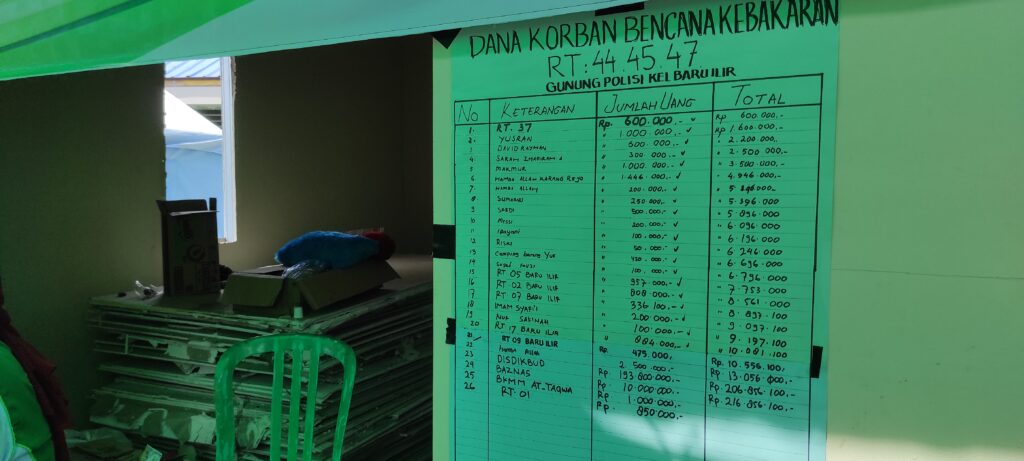 DANA KORBAN BENCANA KEBAKARAN
RT: 44.45.47.
GUNUNG POLISI KEL BARU ILIR
No KETERANGAN JUMLAH UANG TOTAL
1. RT. 37 Rp. 600.000,- Rp 600.000,-
2. YUSRAN " 1.000.000,- Rp 1.600.000,-
3 DAVID RAYMAN " 600.000,- " 2.200.000,-
4. SARAH " 300.000,- " 2.500.000,-
5 MAKMUR " 1.000.000,- " 3.500.000,-
6 HAMBA ALLAH KARANG REJO " 1.446.000,- " 4.946.000,-
7 HAMBA ALLAH " 200.000,-
8 " 250.000,- " 5.396.000
9 " 500.000,- " 5.896.000
10 MESSI " 200.000,- " 6.096.000
11 " 100.000,- " 6.196.000
12 RISKI " 50.000,- " 6.246.000
13 " 450.000,- " 6.696.000
14 " 100.000,- " 6.796.000
15 RT 05 BARU ILIR " 957.000,- " 7.753.000
16 RT 02 BARU ILIR " 808.000,- " 8.561.000
17 RT 07 BARU ILIR " 336.100,- " 8.897.100
18 IMAM SYAFI'I " 200.000,- " 9.097.100
19 NUR SAKINAH " 100.000,- " 9.197.100
20 RT 17 BARU ILIR " 884.000,- " 10.081.100
21 RT 09 BARU ILIR Rp. 475.000, Rp. 10.556.100,
22 HAMBA ALLAH 2.500.000,- Rp. 13.056.000,-
23 DISDIKBUD Rp. 193.800.000,- Rp. 206.856.100,-
24 BAZNAS Rp. 10.000.000,- Rp. 216.856.100,-
25 BKMM AT-TAQWA Rp. 1.000.000,-
26 RT. 01 Rp. 850.000,-